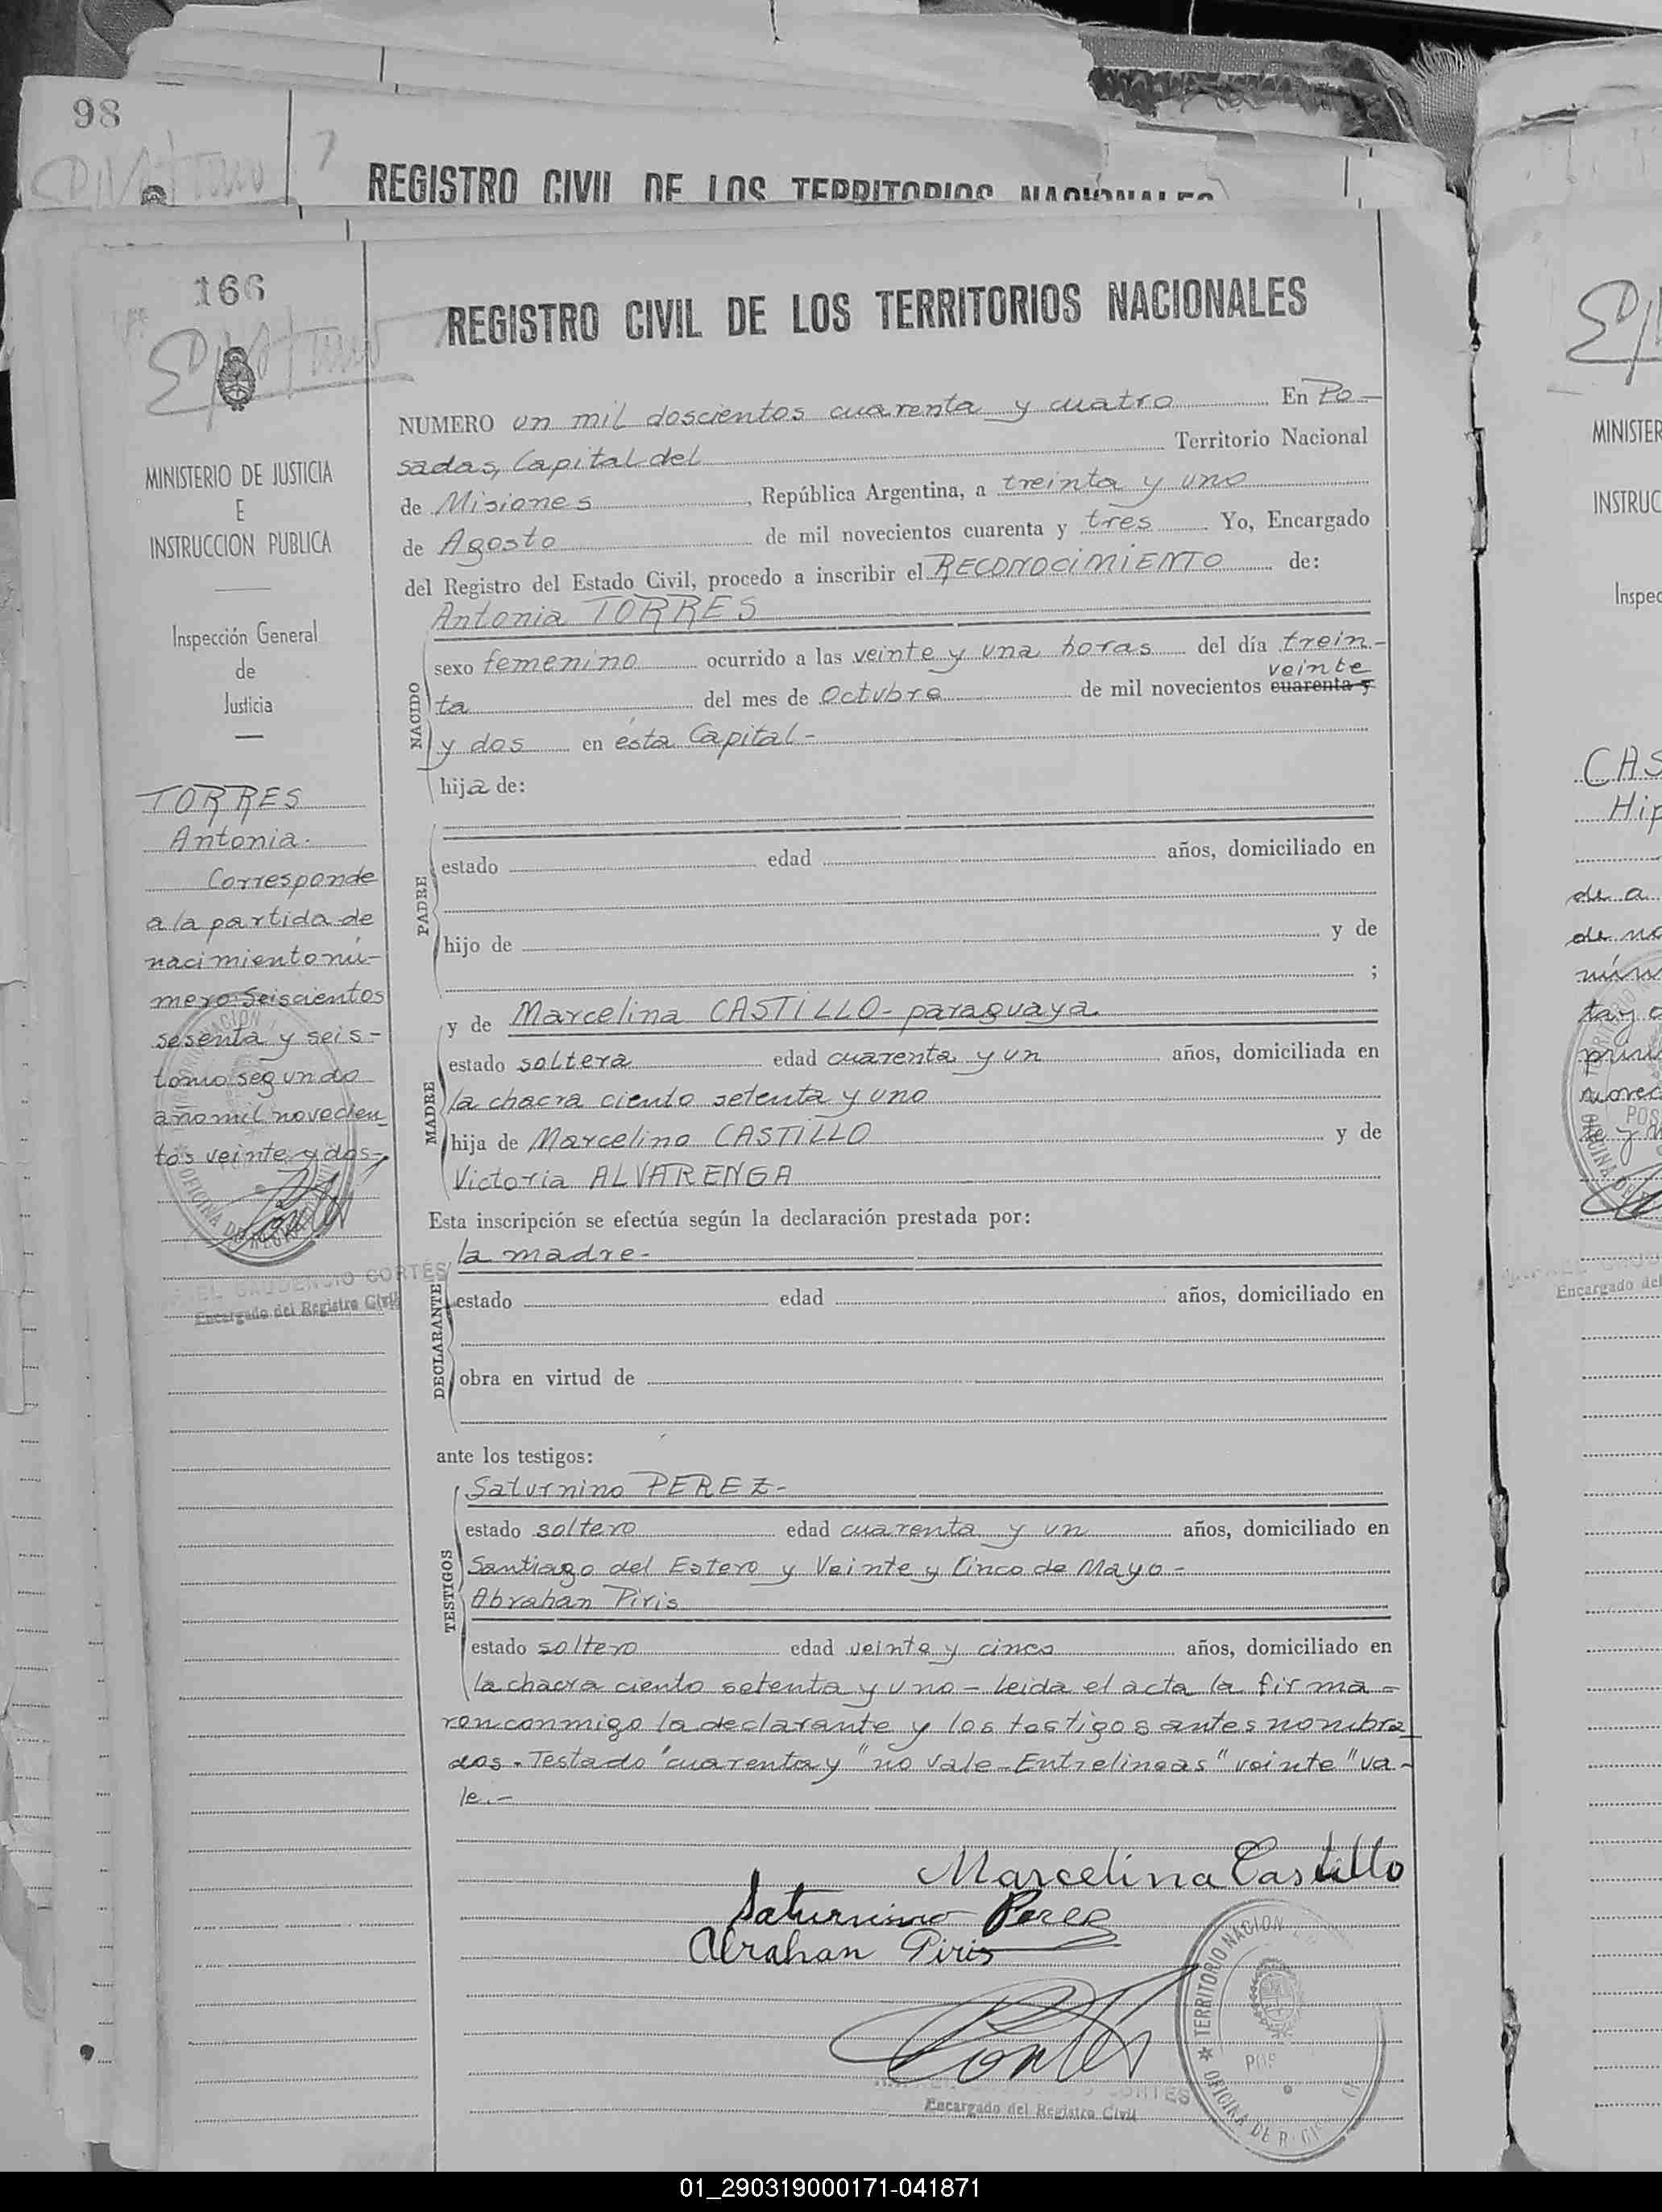 98
REGISTRO CIVIL DE LOS TERRITORIOS NACIONALES
166
MINISTERIO DE JUSTICIA
E
INSTRUCCION PUBLICA
Inspección General
de
Justicia
TORRES
Antonia.
Corresponde
a la partida de
nacimiento nú-
mero: Seiscientos
sesenta y seis-
tomo segundo
año mil novecien_
tos veinte y dos-
GAUDENCIO CORTÉS
Encargado del Registro Civil
REGISTRO CIVIL DE LOS TERRITORIOS NACIONALES
NUMERO un mil doscientos cuarenta y cuatro En Po-
sadas, Capital del Territorio Nacional
de Misiones, República Argentina, a treinta y uno
de Agosto de mil novecientos cuarenta y tres Yo, Encargado
del Registro del Estado Civil, procedo a inscribir el RECONOCIMIENTO de:
Antonia TORRES
NACIDO
sexo femenino ocurrido a las veinte y una horas del día trein-
veinte
ta del mes de Octubre de mil novecientos cuarenta y
y dos en ésta Capital-
hija de:
PADRE
estado edad años, domiciliado en
hijo de y de
;
y de Marcelina CASTILLO- paraguaya
MADRE
estado soltera edad cuarenta y un años, domiciliada en
la chacra ciento setenta y uno
hija de Marcelino CASTILLO y de
Victoria ALVARENGA
Esta inscripción se efectúa según la declaración prestada por:
la madre-
DECLARANTE
estado edad años, domiciliado en
obra en virtud de
ante los testigos:
Saturnino PEREZ-
TESTIGOS
estado soltero edad cuarenta y un años, domiciliado en
Santiago del Estero y Veinte y Cinco de Mayo-
Abrahan Piris
estado soltero edad veinte y cinco años, domiciliado en
la chacra ciento setenta y uno- leida el acta la firma-
ron conmigo la declarante y los testigos antes nombra
dos. Testado "cuarenta y" no vale- Entrelineas "veinte" va-
le.-
Marcelina Castillo
Saturnino Perez
Abrahan Piris
Cortés
CORTÉS
Encargado del Registro Civil
TERRITORIO NACION
POS
OFICINA DE R. CI
MINISTER
INSTRUC
Inspec
CAS
Hip
de a
de na
núm
tay
prim
novec
te y
POS
Encargado del
01_290319000171-041871